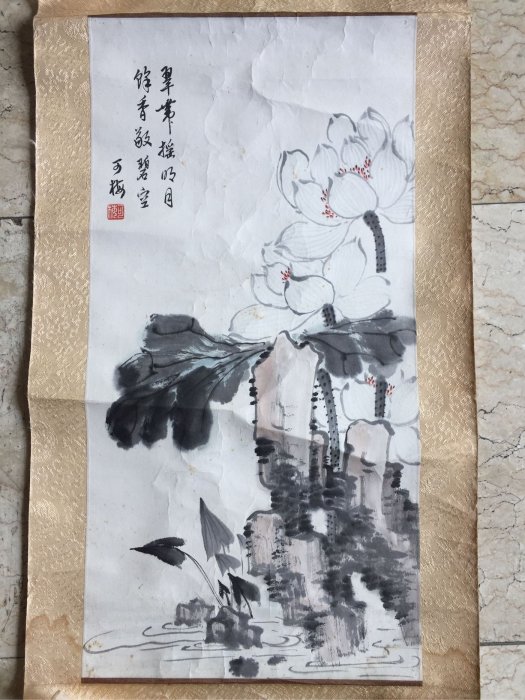 翠帶搖明月
餘香散碧空
可梅